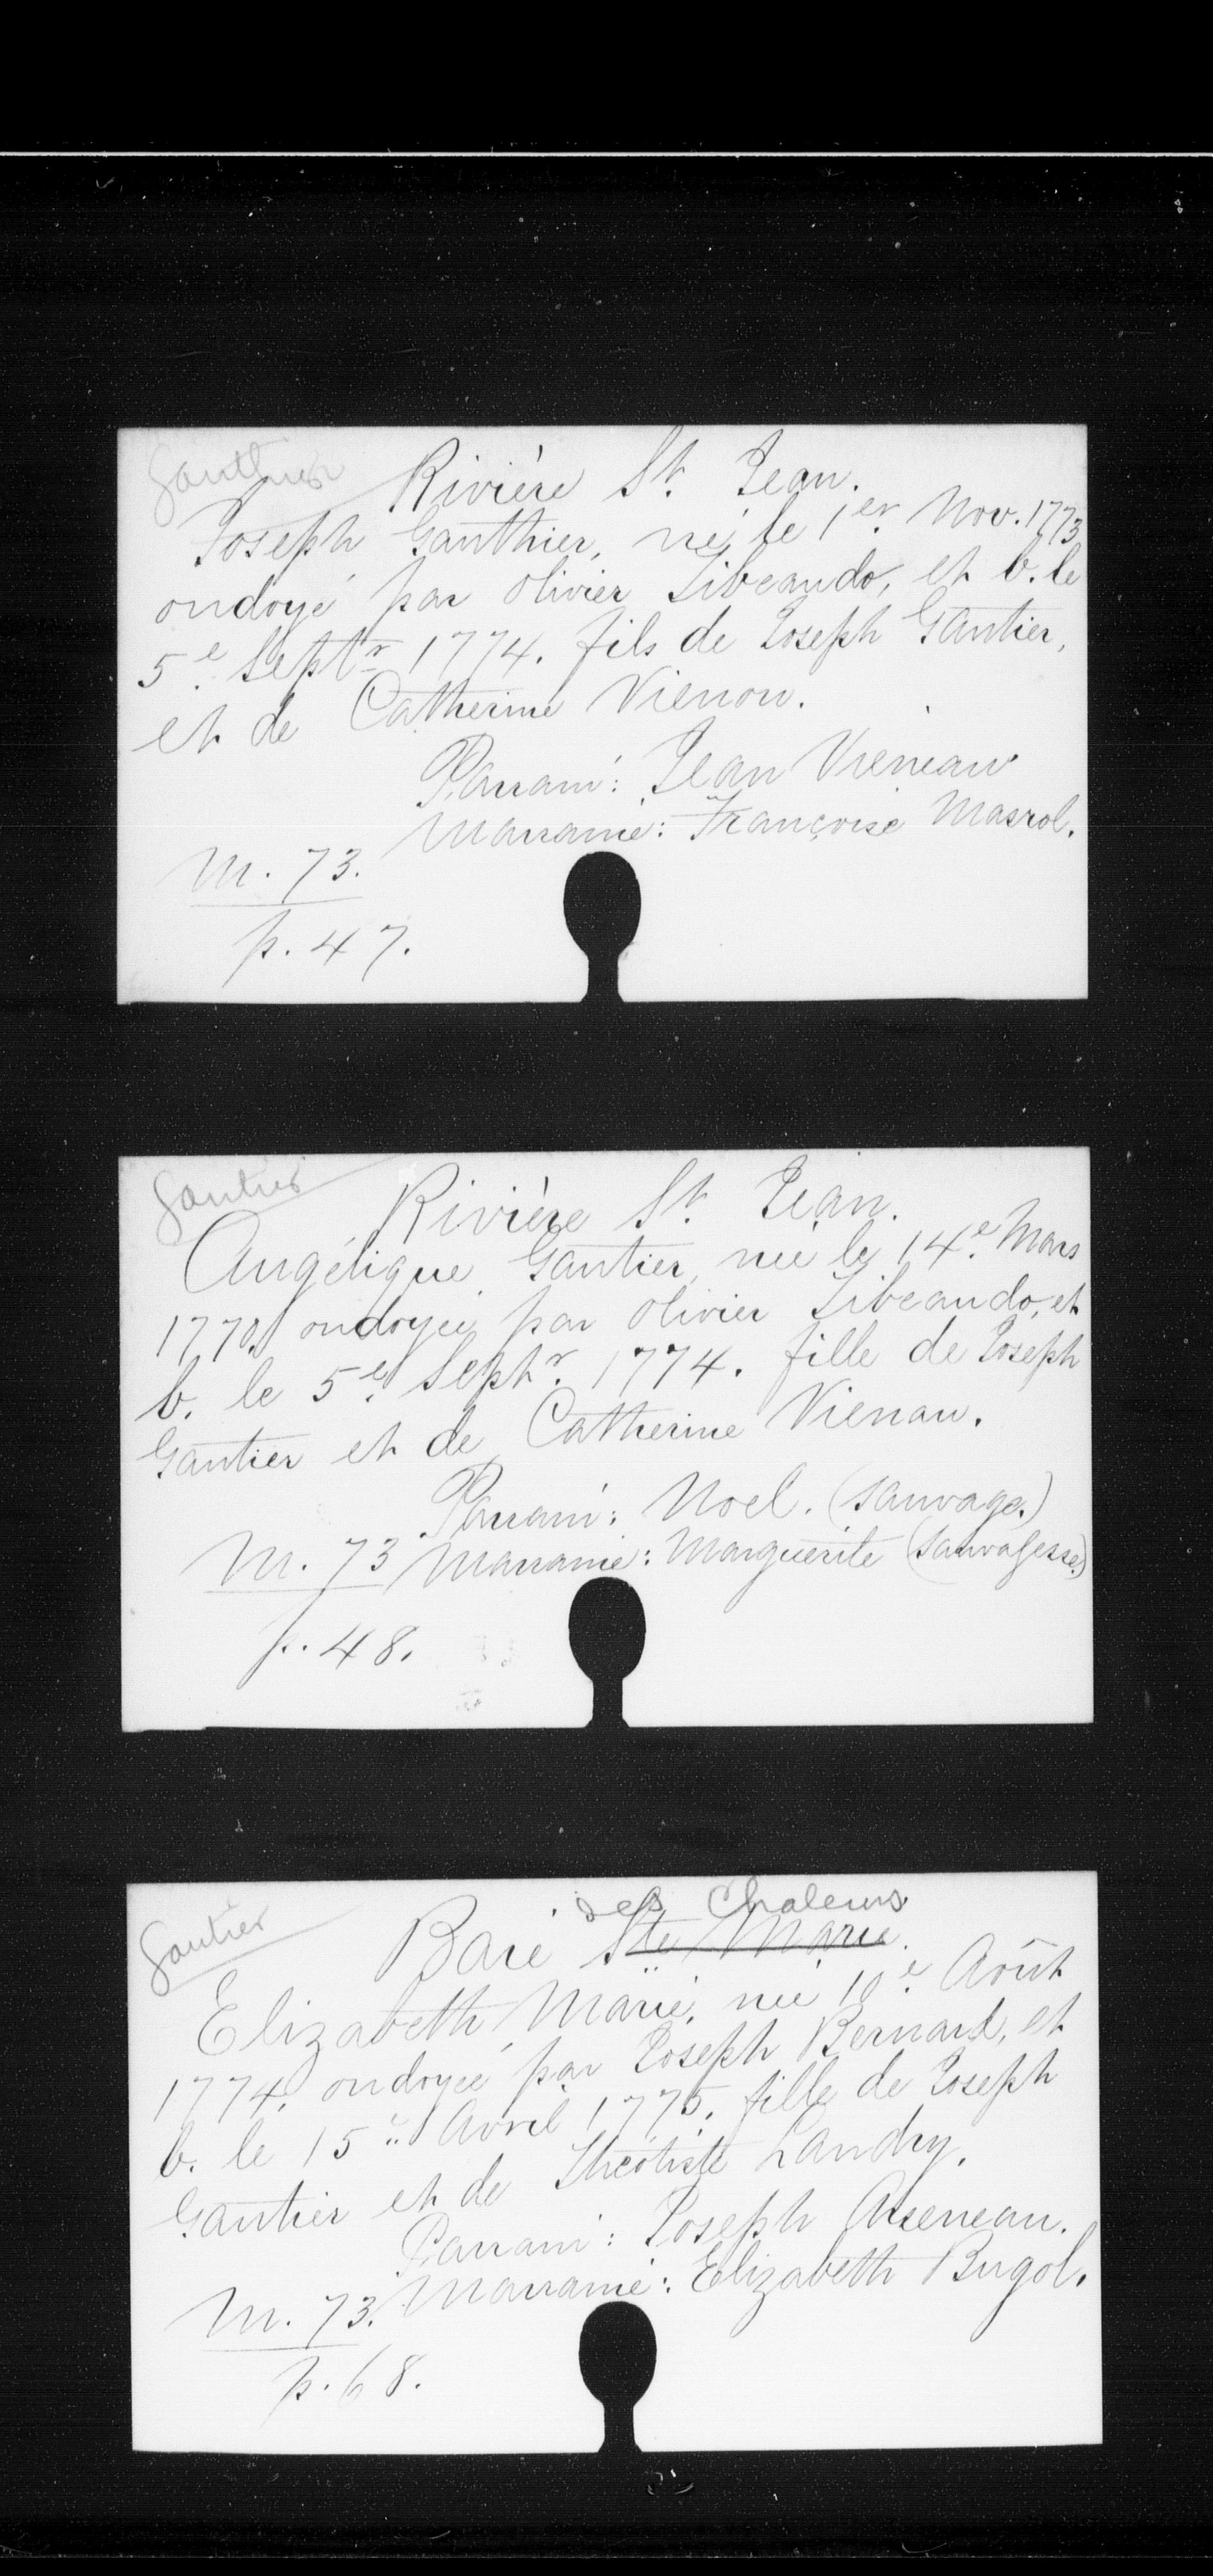 Gauthier
Rivière St. Jean.
Joseph Gauthier, né le 1er Nov. 1773
ondoyé par Olivier Tibeaudo, et b. le
5e Septr 1774. fils de Joseph Gautier,
et de Catherine Vienon.
Parrain: Jean Vieneau
Marraine: Françoise Masrol.
M. 73.
p. 47.
Gautier
Rivière St. Jean.
Angélique Gautier, née le 14e Mars
1770, ondoyée par Olivier Tibeaudo, et
b. le 5e Septr. 1774. fille de Joseph
Gautier et de Catherine Vienau.
Parrain: Noel. (Sauvage.)
M. 73 Marraine: Marguerite (Sauvagesse)
p. 48.
Gautier
des Chaleurs
Baie Ste Marie.
Elizabeth Marie, née 10e Août
1774, ondoyée par Joseph Bernard, et
b. le 15e Avril 1775, fille de Joseph
Gautier et de Théotiste Landry.
Parrain: Joseph Arseneau.
Marraine: Elizabeth Bugol.
M. 73.
p. 68.